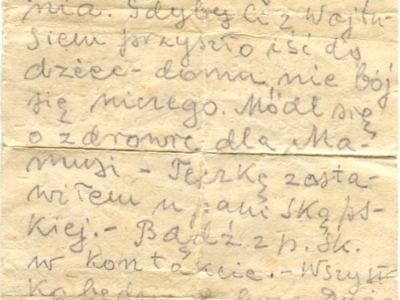 nia. Gdyby Ci z Wojtu-
siem przyszło iść do
dziec-domu nie bój
się niczego. Módl się
o zdrowie dla Ma-
musi - Teczkę zosta-
wiłem u pani Skąps-
kiej. - Bądź z p. Sk.
w kontakcie. - Wszyst-